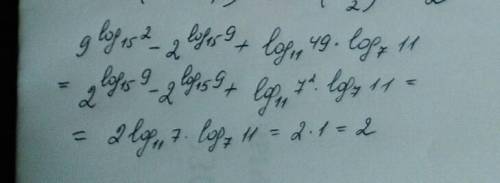 9^{log_{15} 2} - 2^{log_{15} 9} + log_{11} 49 · log_7 11
= 2^{log_{15} 9} - 2^{log_{15} 9} + log_{11} 7² · log_7 11 =
= 2 log_{11} 7 · log_7 11 = 2 · 1 = 2